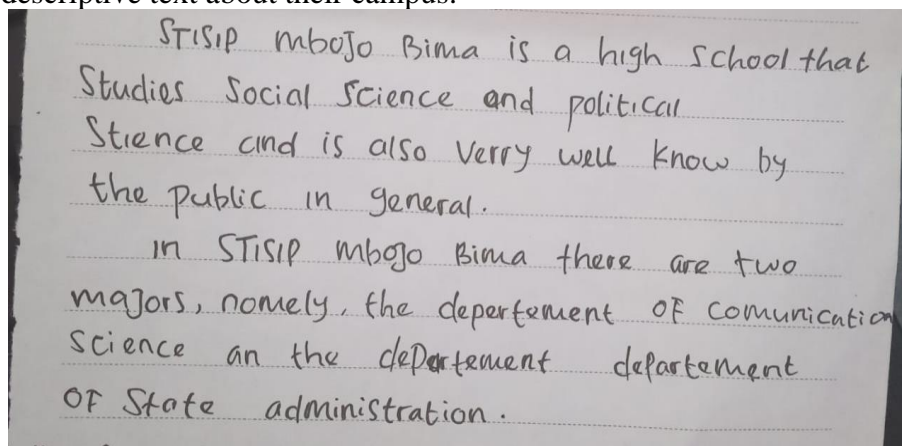 descriptive text about their campus.
STISIP mboJo Bima is a high School that
Studies Social Science and political
Stience and is also Verry well know by
the public in general.
in STISIP mbojo Bima there are two
maJors, nomely, the depertement OF comunication
Science an the depertement departement
OF State administration.